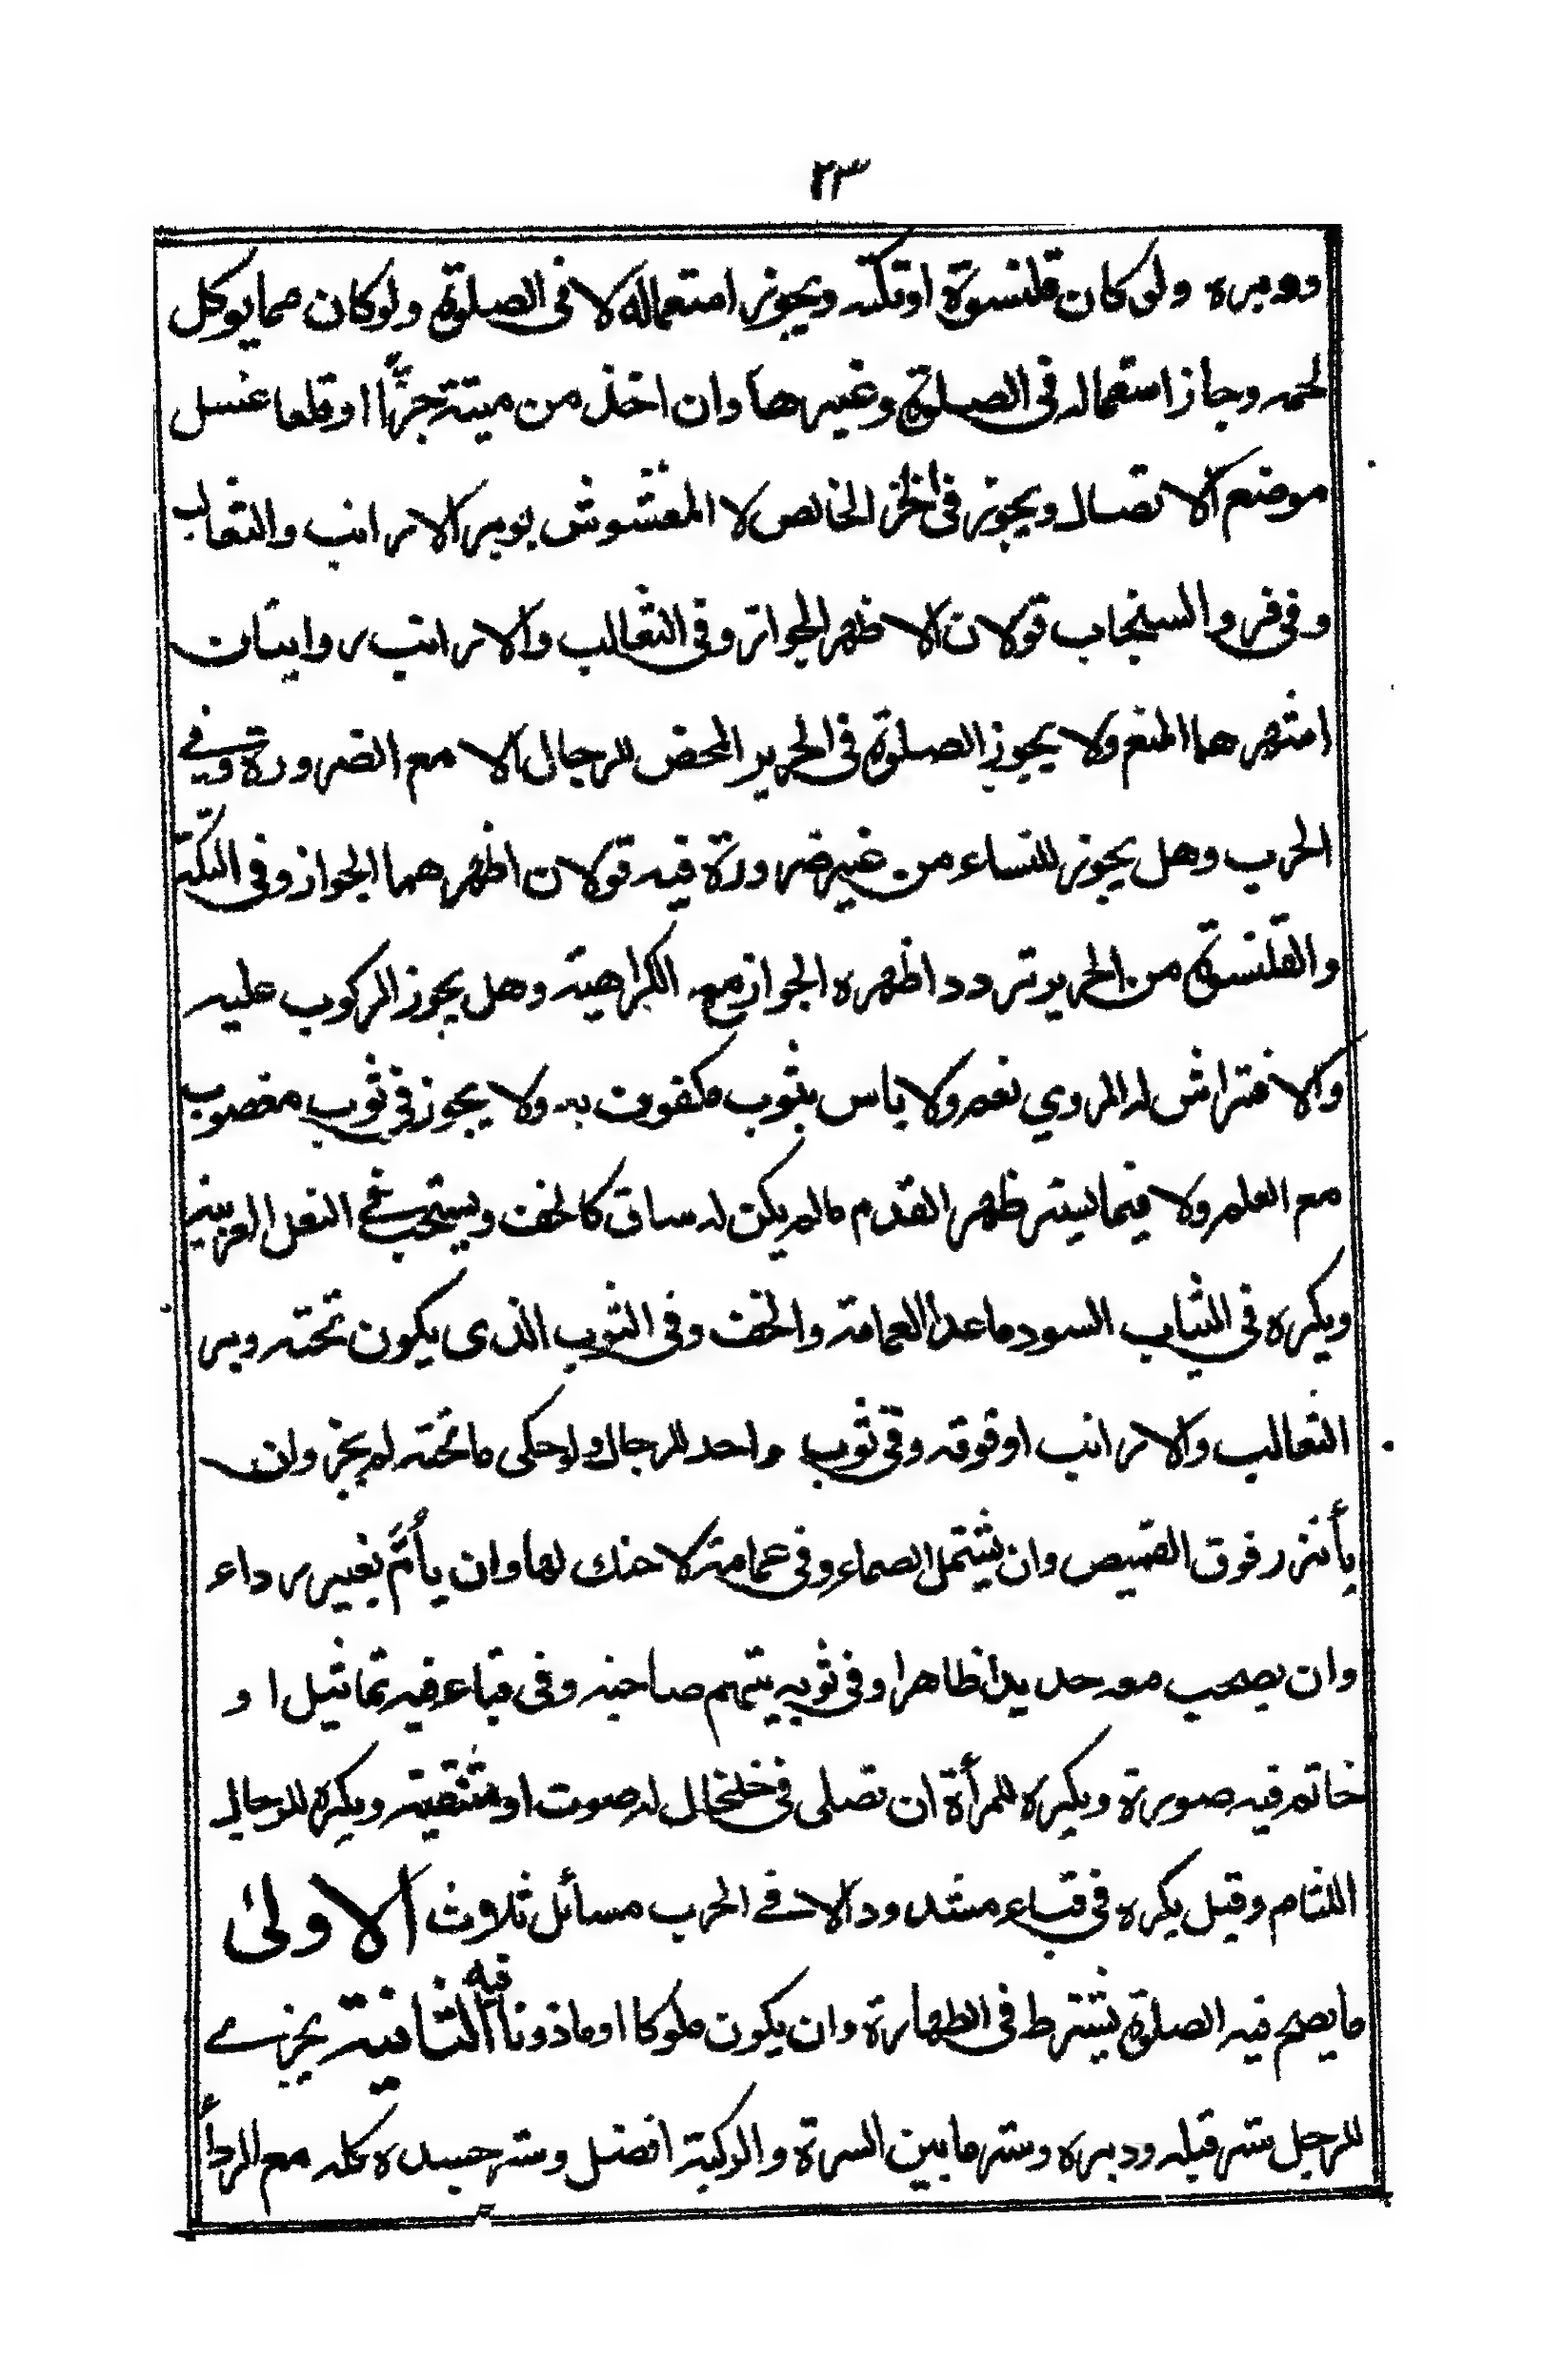 ٢٣
ووبره ولو كان قلنسوة او تكته ويجوز استعماله لا فى الصلوة ولو كان مما يوكل
لحمه وجاز استعماله فى الصلوة وغيرها وان اخذ من ميتة جزًّا او قلعا غسل
موضع الاتصال ويجوز فى الخز الخالص لا المغشوش بوبر الارانب والثعالب
وفى فرو السنجاب قولان الاظهر الجواز وفى الثعالب والارانب روايتان
اشهرهما المنع ولا يجوز الصلوة فى الحرير المحض للرجال الا مع الضرورة وفي
الحرب وهل يجوز للنساء من غير ضرورة فيه قولان اظهرهما الجواز وفى التكة
والقلنسوة من الحرير تردد اظهره الجواز مع الكراهية وهل يجوز الركوب عليه
والافتراش له المروي نعم ولا باس بثوب مكفوف به ولا يجوز فى ثوب مغصوب
مع العلم ولا فيما يستر ظهر القدم مالم يكن له ساق كالخف ويستحب في النعل العربية
ويكره فى الثياب السود ماعدا العمامة والخف وفى الثوب الذى يكون تحته وبر
الثعالب والارانب او فوقه وفى ثوب واحد للرجال ولو حكى ما تحته لم يجز وان
يأتزر فوق القميص وان يشتمل الصماء وفى عمامة لا حنك لها وان يأُمَّ بغير رداء
وان يصحب معه حديدا ظاهرا وفى ثوب يتهم صاحبه وفى قباء فيه تماثيل او
خاتم فيه صورة ويكره للمرأة ان تصلى فى خلخال له صوت او متنقبة ويكره للرجال
اللثام وقيل يكره فى قباء مشدود الا في الحرب مسائل ثلاث الاولىٰ
ما يصح فيه الصلوة يشترط فى الطهارة وان يكون مملوكا او ماذونا فيه الثانية يجزي
للرجل ستر قبله ودبره وستر ما بين السرة والركبة افضل وستر جسده كله مع الردأ